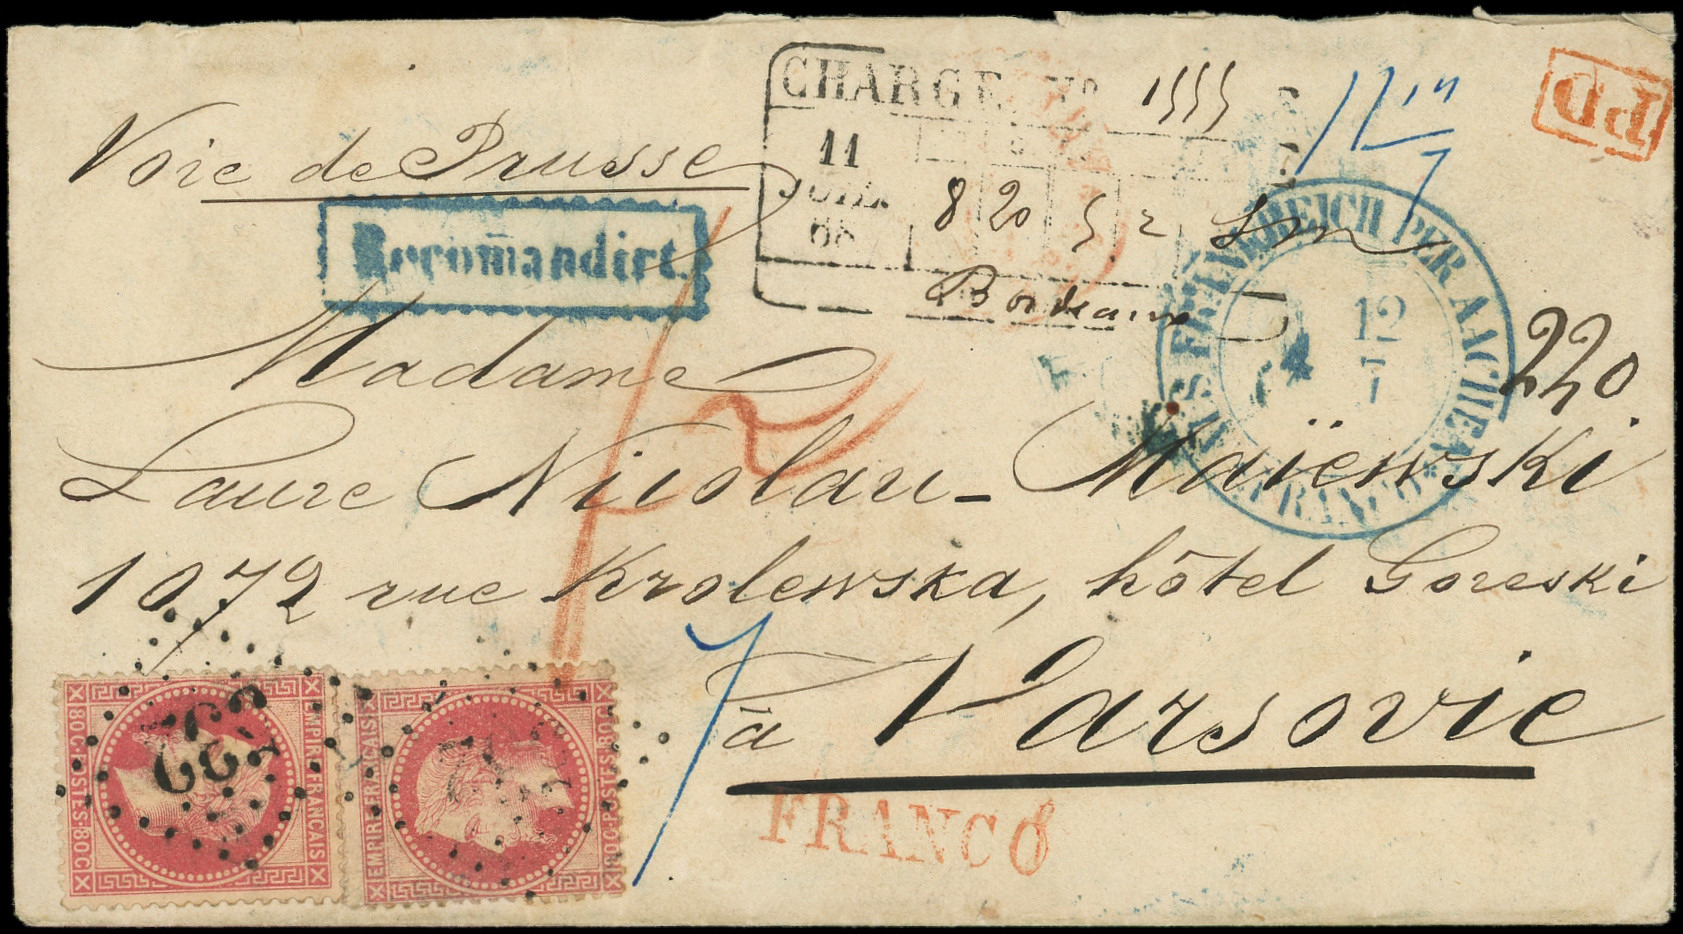 CHARGE Nº 1555
PD
Voie de Prusse
11
JUIL.
68
8 20 5 2
Bordeaux
Recomandirt.
AUS FRANKREICH PER AACHEN
FRANCO
12
7
220.
Madame
Laure Nicolau - Maïewski
1072 rue Krolewska, hôtel Goreski
à Varsovie
7
FRANCO
EMPIRE FRANÇAIS
80 C · POSTES · 80 C
EMPIRE FRANÇAIS
80 C · POSTES · 80 C